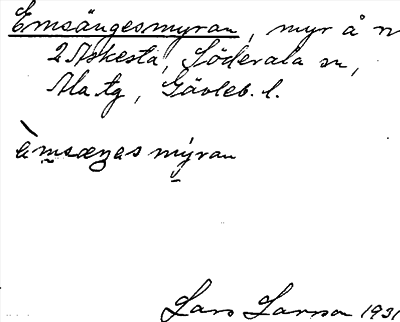 Emsängesmyran, myr å n
2 Askesta, Söderala sn,
Ala tg, Gävleb. l.
èmsæŋes mýran
Lars Larsson 1931